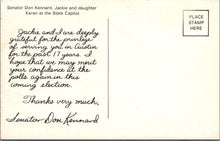 Senator Don Kennard, Jackie and daughter
Karen at the State Capitol.
PLACE
STAMP
HERE
Jackie and I are deeply
grateful for the privilege
of serving you in Austin
for the past 17 years. I
hope that we may merit
your confidence at the
polls again in this
coming election.
Thanks very much,
Senator Don Kennard